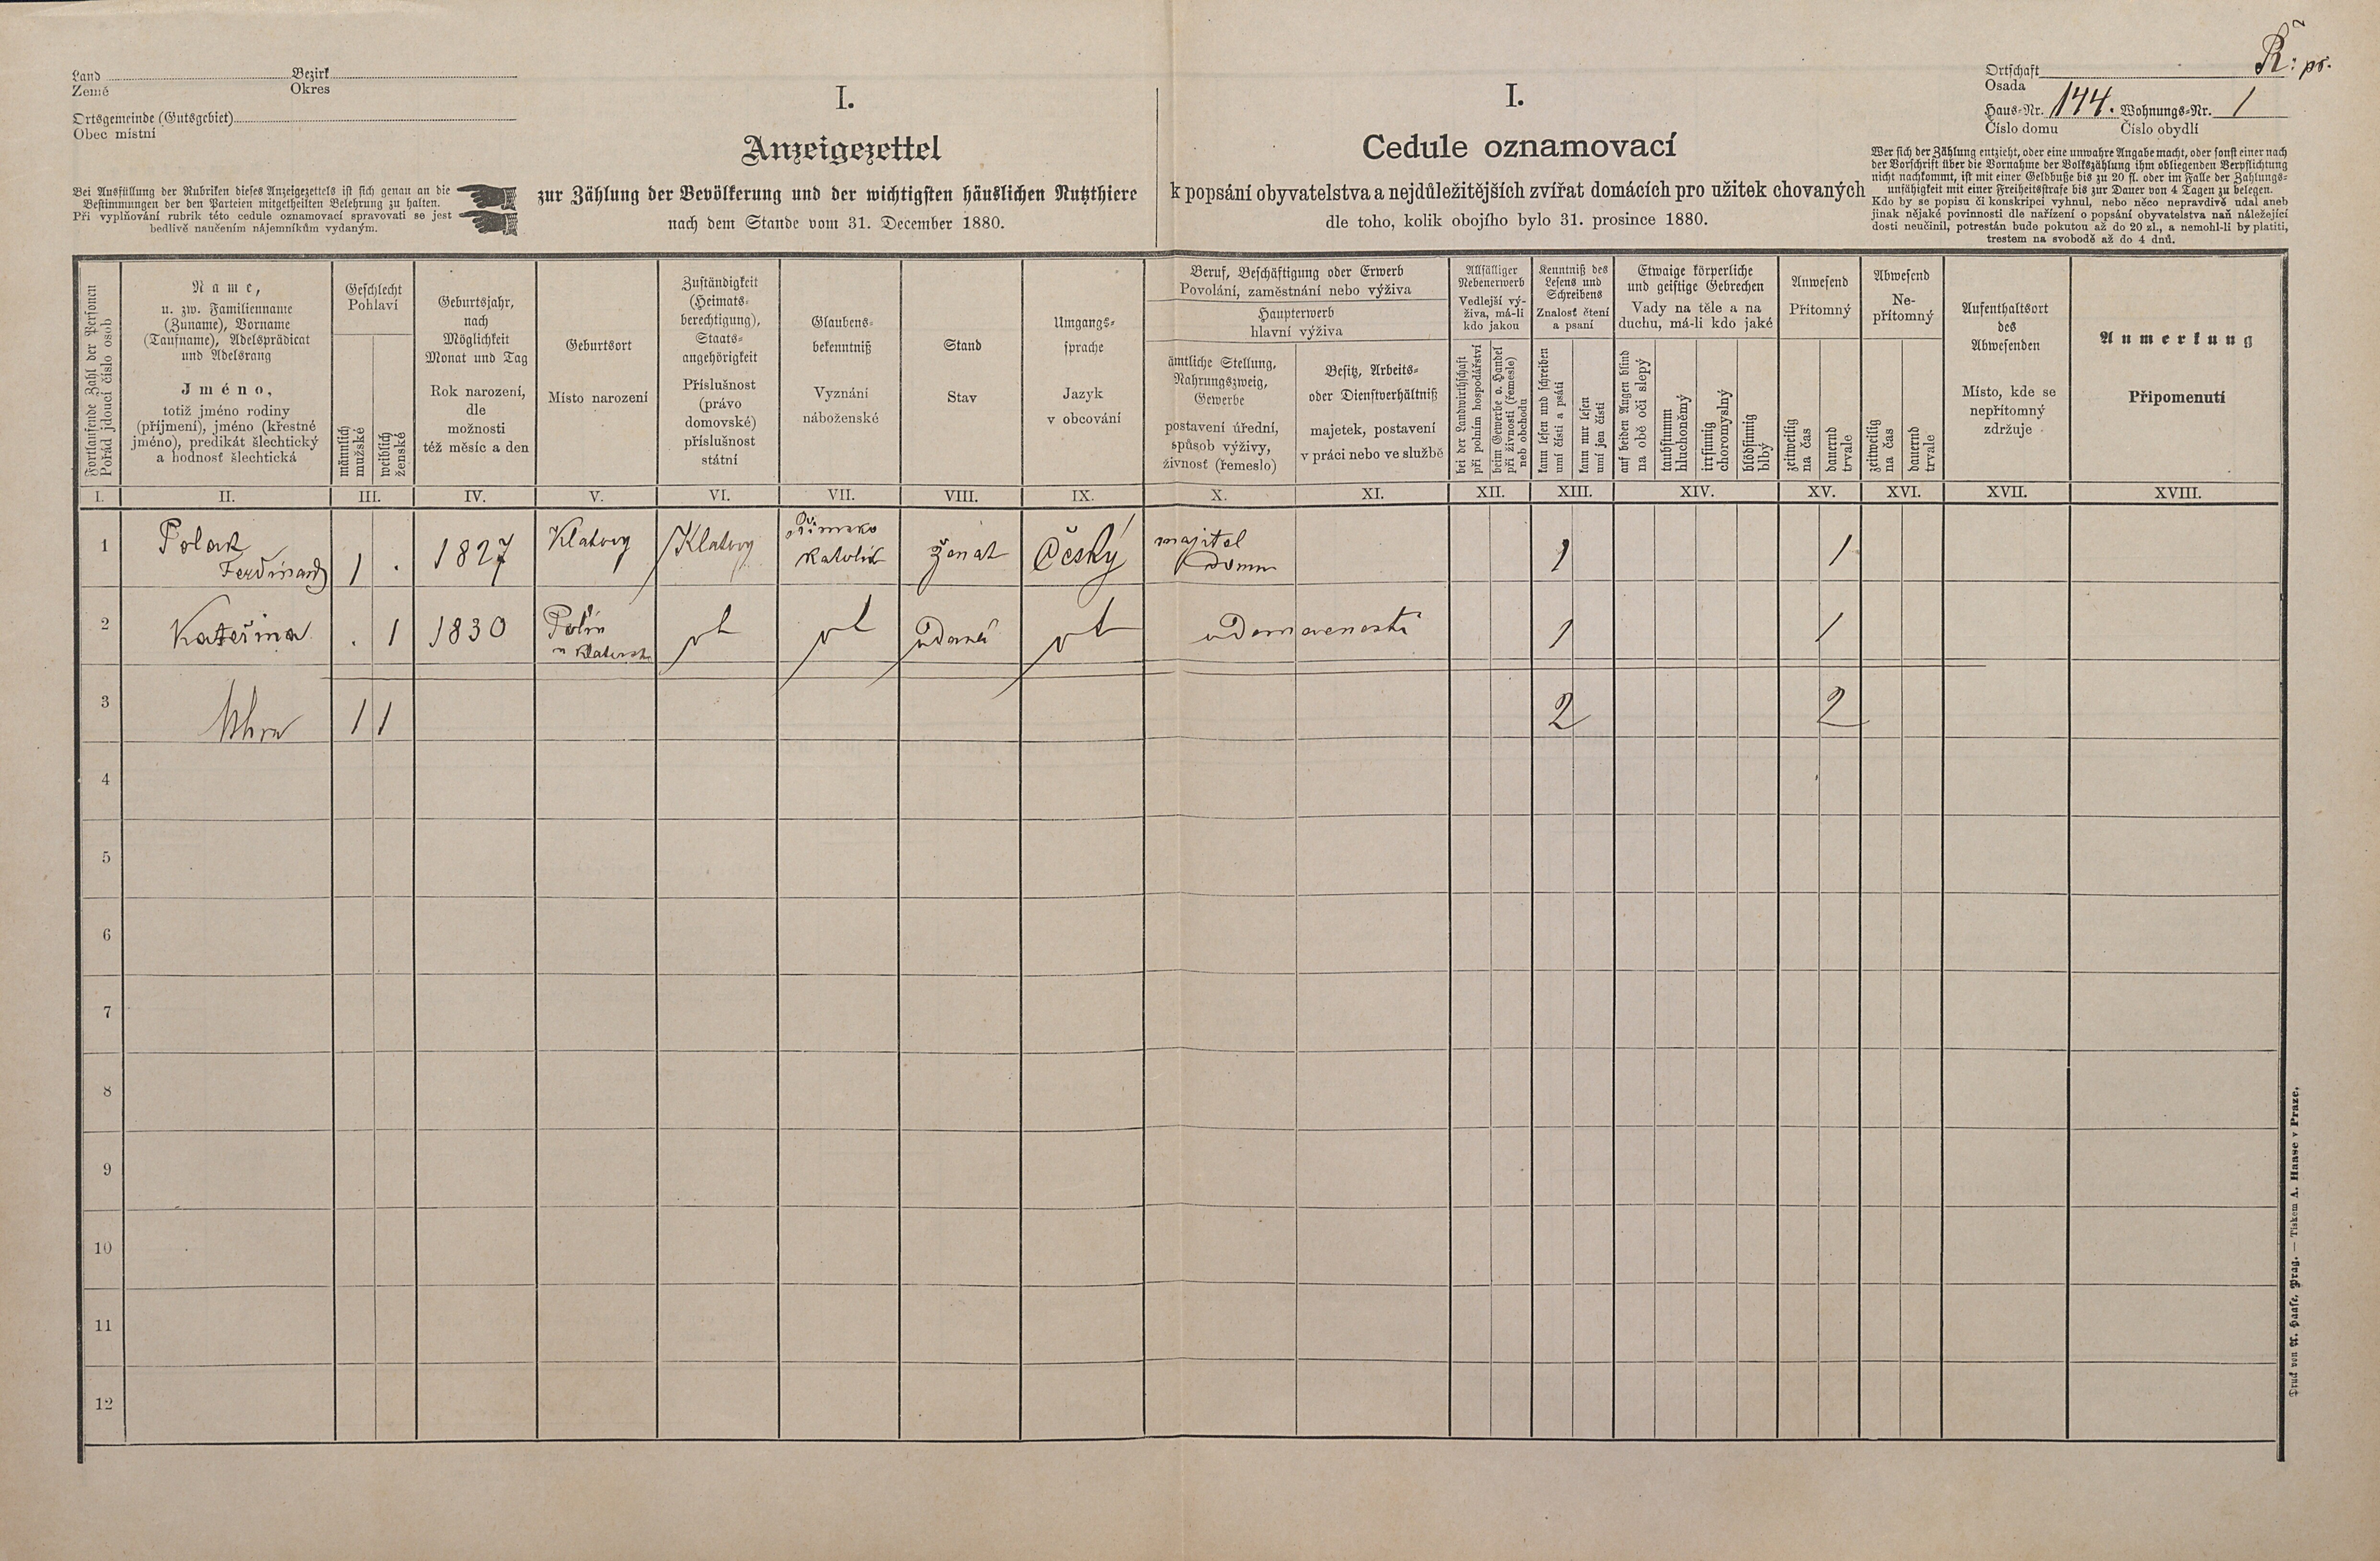 2
R: pr.
Land Bezirk
Země Okres
Ortsgemeinde (Gutsgebiet)
Obec místní
Ortschaft
Osada
Haus-Nr. 144. Wohnungs-Nr. 1
Číslo domu Číslo obydlí
I.
Anzeigezettel
zur Zählung der Bevölkerung und der wichtigsten häuslichen Nutzthiere
nach dem Stande vom 31. December 1880.
I.
Cedule oznamovací
k popsání obyvatelstva a nejdůležitějších zvířat domácích pro užitek chovaných
dle toho, kolik obojího bylo 31. prosince 1880.
Bei Ausfüllung der Rubriken dieses Anzeigezettels ist sich genau an die
Bestimmungen der den Parteien mitgetheilten Belehrung zu halten.
Při vyplňování rubrik této cedule oznamovací spravovati se jest
bedlivě naučením nájemníkům vydaným.
Wer sich der Zählung entzieht, oder eine unwahre Angabe macht, oder sonst einer nach
der Vorschrift über die Vornahme der Volkszählung ihm obliegenden Verpflichtung
nicht nachkommt, ist mit einer Geldbuße bis zu 20 fl. oder im Falle der Zahlungs-
unfähigkeit mit einer Freiheitsstrafe bis zur Dauer von 4 Tagen zu belegen.
Kdo by se popisu či konskripci vyhnul, nebo něco nepravdivě udal aneb
jinak nějaké povinnosti dle nařízení o popsání obyvatelstva naň náležející
dosti neučinil, potrestán bude pokutou až do 20 zl., a nemohl-li by platiti,
trestem na svobodě až do 4 dnů.
Fortlaufende Zahl der Personen
Pořád jdoucí číslo osob
Name,
u. zw. Familienname
(Zuname), Vorname
(Taufname), Adelsprädicat
und Adelsrang
Jméno,
totiž jméno rodiny
(příjmení), jméno (křestné
jméno), predikát šlechtický
a hodnost šlechtická
Geschlecht
Pohlaví
männlich
mužské
weiblich
ženské
Geburtsjahr,
nach
Möglichkeit
Monat und Tag
Rok narození,
dle
možnosti
též měsíc a den
Geburtsort
Místo narození
Zuständigkeit
(Heimats-
berechtigung),
Staats-
angehörigkeit
Příslušnost
(právo
domovské)
příslušnost
státní
Glaubens-
bekenntniß
Vyznání
náboženské
Stand
Stav
Umgangs-
sprache
Jazyk
v obcování
Beruf, Beschäftigung oder Erwerb
Povolání, zaměstnání nebo výživa
Haupterwerb
hlavní výživa
ämtliche Stellung,
Nahrungszweig,
Gewerbe
postavení úřední,
spůsob výživy,
živnost (řemeslo)
Besitz, Arbeits-
oder Dienstverhältniß
majetek, postavení
v práci nebo ve službě
Allfälliger
Nebenerwerb
Vedlejší vý-
živa, má-li
kdo jakou
bei der Landwirthschaft
při polním hospodářství
beim Gewerbe o. Handel
při živnosti (řemesle)
neb obchodu
Kenntniß des
Lesens und
Schreibens
Znalost čtení
a psaní
kann lesen und schreiben
umí čísti a psáti
kann nur lesen
umí jen čísti
Etwaige körperliche
und geistige Gebrechen
Vady na těle a na
duchu, má-li kdo jaké
auf beiden Augen blind
na obě oči slepý
taubstumm
hluchoněmý
irrsinnig
choromyslný
blödsinnig
blbý
Anwesend
Přítomný
zeitweilig
na čas
dauernd
trvale
Abwesend
Ne-
přítomný
zeitweilig
na čas
dauernd
trvale
Aufenthaltsort
des
Abwesenden
Místo, kde se
nepřítomný
zdržuje
Anmerkung
Připomenutí
I. II. III. IV. V. VI. VII. VIII. IX. X. XI. XII. XIII. XIV. XV. XVI. XVII. XVIII.
1 Polak Ferdinand 1 . 1827 Klatovy Klatovy římsko katolík ženat Český majitel domu 1 1
2 Kateřina . 1 1830 Polín vdaná 1 1
3 1 1 2 2
4
5
6
7
8
9
10
11
12
Druck von A. Haase, Prag. — Tiskem A. Haase v Praze.